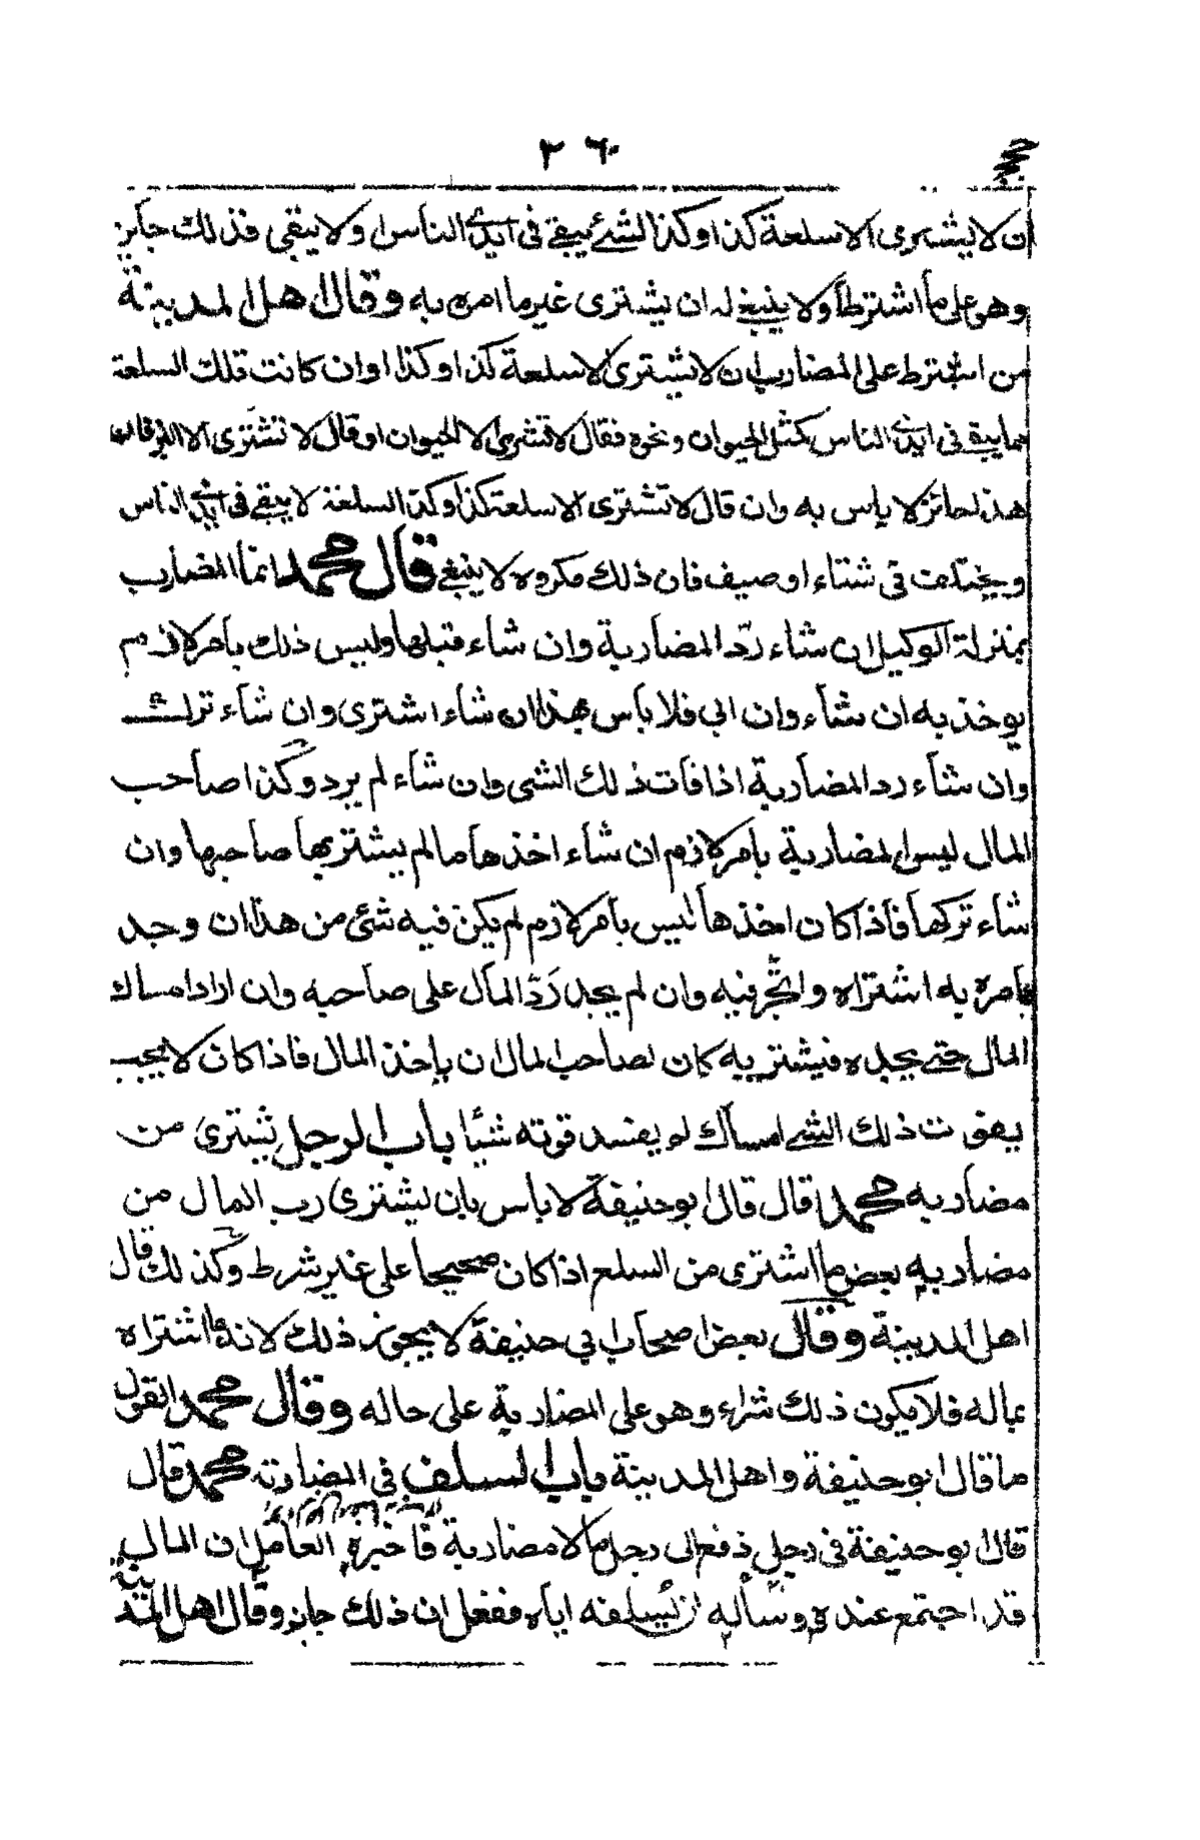 ٢٦٠
ان لا يشترى الا سلعة كذا وكذا الشئ يبقے فى ايدى الناس اولا يبقى فذلك جائز
وهو على ما اشترطا ولا ينبغے له ان يشترى غير ما امره به وقال اهل المدينة
من اشترط على المضارب ان لا يشترى الا سلعة كذا وكذا اوان كانت تلك السلعة
مما يبقے فى ايدى الناس كمثل الحيوان ونحوه فقال لا تشترى الا الحيوان او قال لا تشترى الا الرقيق
هذا جائز لا باس به وان قال لا تشترى الا سلعة كذا وكذا لسلعة لا يبقے فى ايدى الناس
ويختلف فى شتاء او صيف فان ذلك مكروه لا ينبغے قال محمد انما المضارب
بمنزلة الوكيل ان شاء ردّ المضاربة وان شاء قبلها وليس ذلك بامر لازم
يوخذ به ان شاء وان ابى فلا باس بهذا ان شاء اشترى وان شاء ترك
وان شاء رد المضاربة اذا فات ذلك الشى وان شاء لم يرد وكذا صاحب
المال ليس المضاربة بامر لازم ان شاء اخذها ما لم يشتر بها صاحبها وان
شاء تركها فاذا كان اخذها ليس بامر لازم لم يكن فيه شئ من هذا ان وجد
مامره به اشتراه واتّجر فيه وان لم يجد رَدَّ المال على صاحبه وان اراد امساك
المال حتى يجده فيشتريه كان لصاحب المال ان ياخذ المال فاذا كان لا يجب
يفوت ذلك الشے امساك لو يفسد قوته شيئا باب الرجل يشترى من
مضاربه محمد قال قال ابو حنيفة لا باس بان يشترى رب المال من
مضاربه بعض ما اشترى من السلع اذا كان صحيحا على غير شرط وكذلك قال
اهل المدينة وقال بعض اصحاب ابى حنيفة لا يجوز ذلك لانه اشتراه
بماله فلا يكون ذلك شراء وهو على المضاربة على حاله وقال محمد القول
ما قال ابو حنيفة واهل المدينة باب السلف فى المضاربة محمد قال
قال ابو حنيفة فى رجل دفع الى رجل مالا مضاربة فاخبره العامل ان المال
قد اجتمع عنده وساله ان يسلفه اياه ففعل ان ذلك جائز وقال اهل المدينة